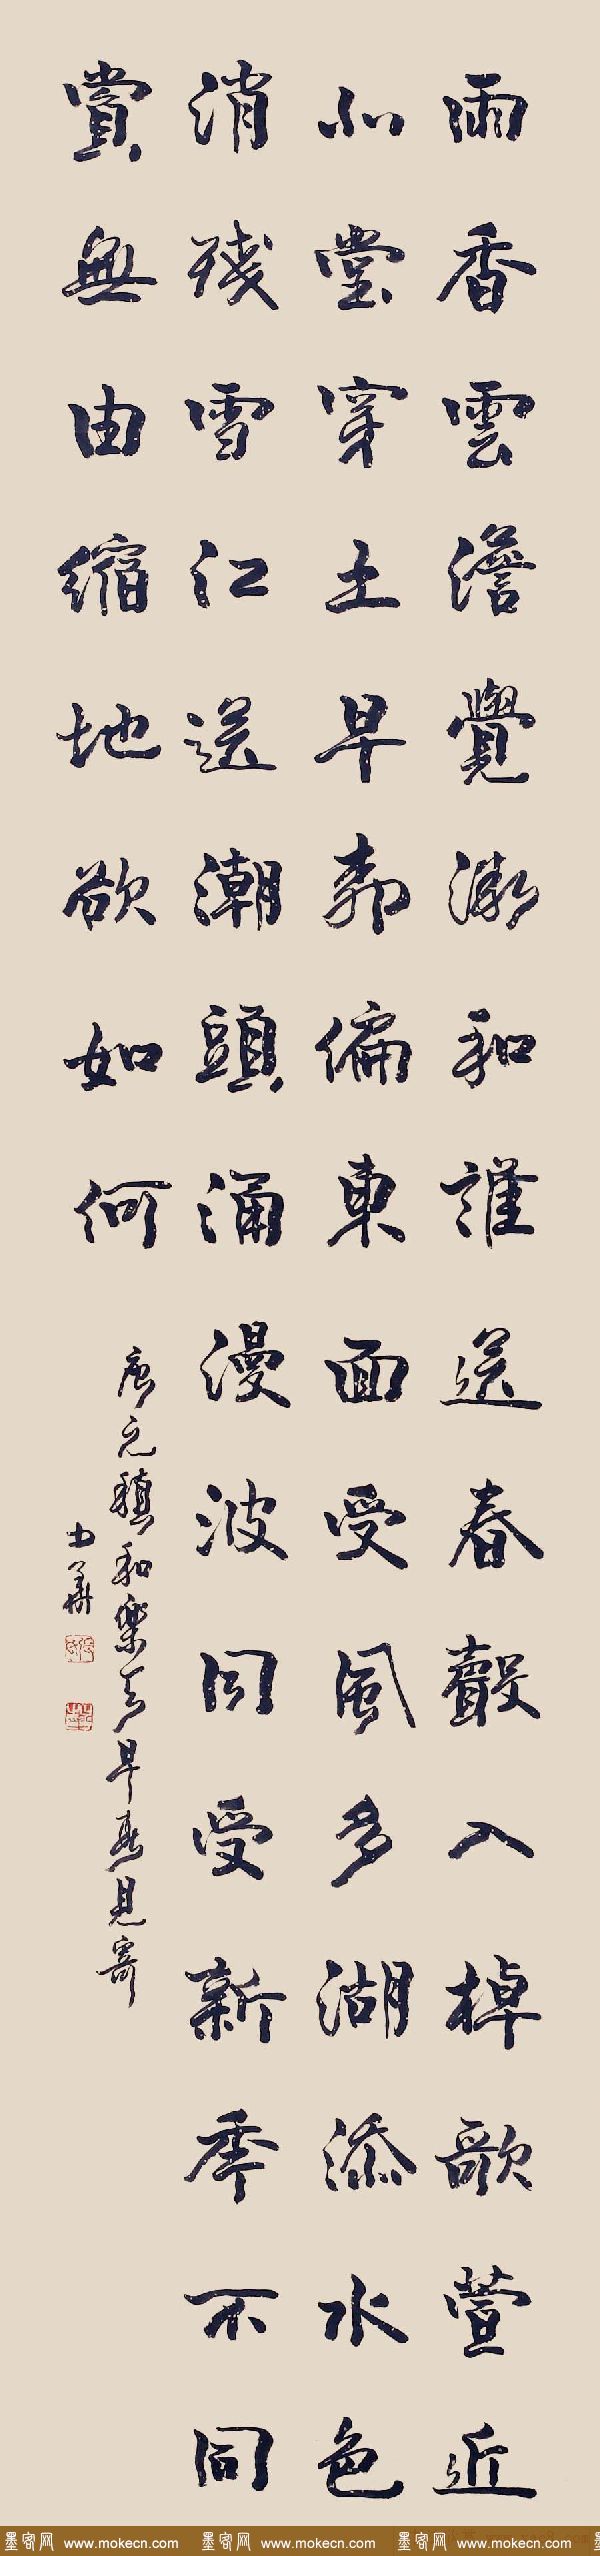 雨香雲澹覺微和誰送春聲入棹歌萱近
北堂穿土早柳偏東面受風多湖添水色
消残雪江送潮頭涌漫波同受新年不同
賞無由縮地欲如何
唐元稹和樂天早春見寄
墨客网 www.mokecn.com 墨客网 www.mokecn.com 墨客网 www.mokecn.com